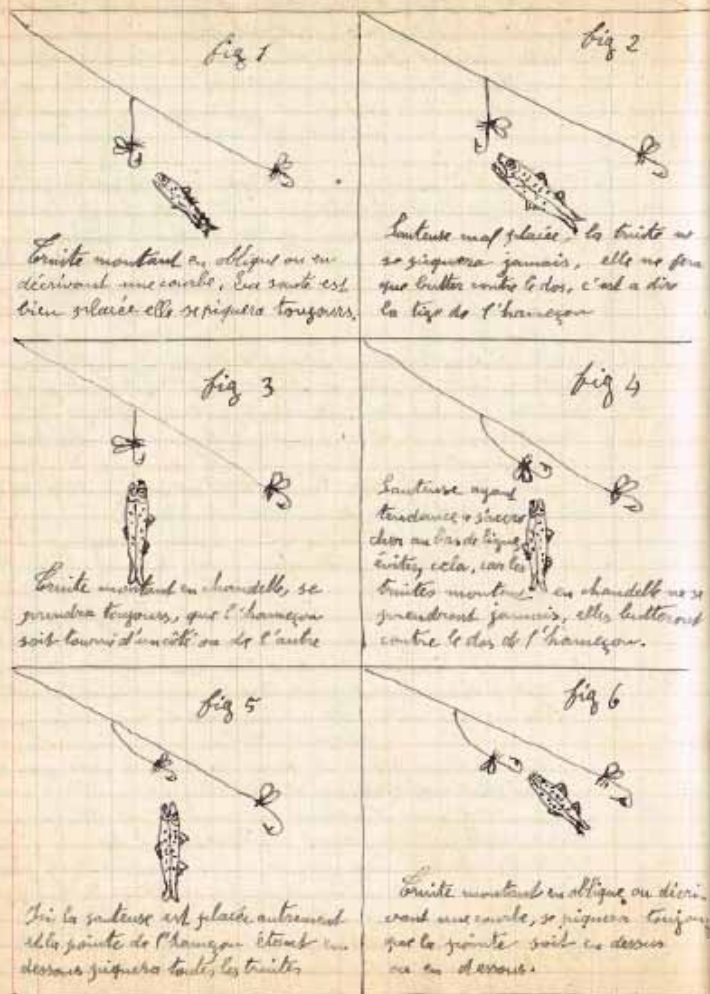 fig 1
Truite montant en oblique ou en
décrivant une courbe, sa saute est
bien placée elle se piquera toujours.
fig 2
Sauteuse mal placée, la truite ne
se piquera jamais, elle ne fera
que butter contre le dos, c'est a dire
la tige de l'hameçon
fig 3
Truite montant en chandelle, se
prendra toujours, que l'hameçon
soit tourné d'un côté ou de l'autre
fig 4
Sauteuse ayant
tendance a s'accro
cher au bas de ligne,
évitez cela, car les
truites montant en chandelle ne se
prendront jamais, elles butteront
contre le dos de l'hameçon.
fig 5
Ici la sauteuse est placée autrement
et la pointe de l'hameçon étant en
dessous piquera toutes les truites
fig 6
Truite montant en oblique, ou décri-
vant une courbe, se piquera toujours
que la pointe soit en dessus
ou en dessous.